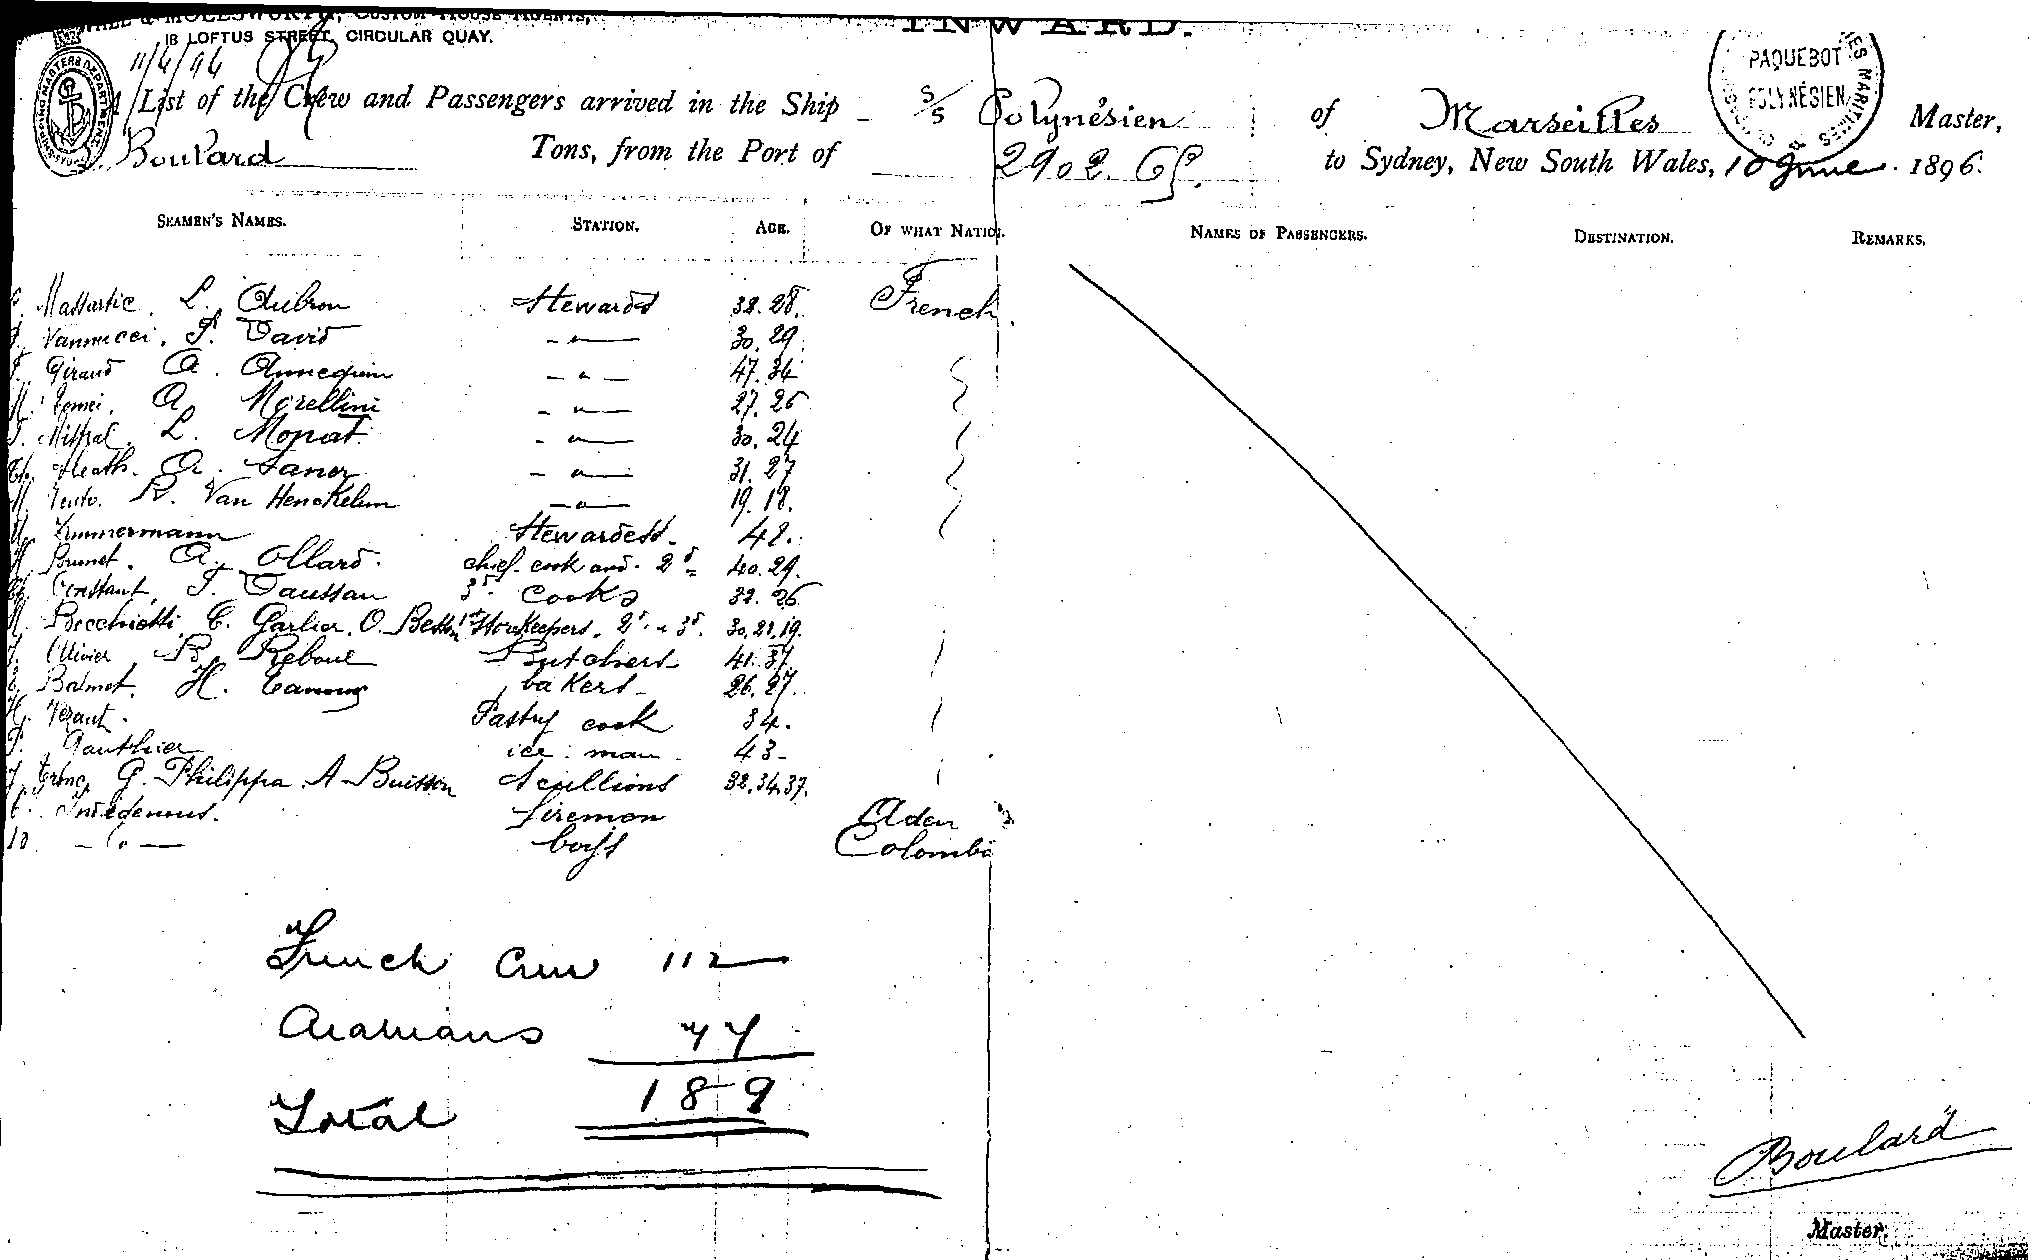 & MOLESWORTH, CUSTOM HOUSE AGENTS,
18 LOFTUS STREET, CIRCULAR QUAY.
INWARD.
11/6/96
A List of the Crew and Passengers arrived in the Ship S/S Polynésien of Marseilles Master,
PAQUEBOT POLYNÉSIEN
Boulard Tons, from the Port of 2902.65. to Sydney, New South Wales, 10 June 1896.
SEAMEN'S NAMES. STATION. AGE. OF WHAT NATION. NAMES OF PASSENGERS. DESTINATION. REMARKS.
Massartic. L. Aubron Stewards 32.28. French
Vannucci. F. David - " - 30.29.
Giraud A. Annequin - " - 47.34
A. Morellini - " - 27.25
Mistral. L. Monat. - " - 30.24
Heath. A. Saner - " - 31.27
R. Van Henckelum - " - 19.18.
Zimmermann Stewardess. 42.
Brunet. A. Ollard. chief cook and 2d 40.29.
Constant. F. Daussan 3d. cooks 32.26
Bocchiotti. C. Garlier. O. 1st Storekeepers. 2d. " 3d. 30.21.19.
Olivier B. Reboul Butchers 41.37.
Balmet. H. bakers 26.27.
Pastry cook 34.
F. Gauthier ice man. 43.
G. Philippa. A. Buisson Scullions 32.34.37.
Indegenous. firemen Aden
10. - " - boys Colombo
French Crew 112
Arabians 77
Total 189
Boulard
Master.